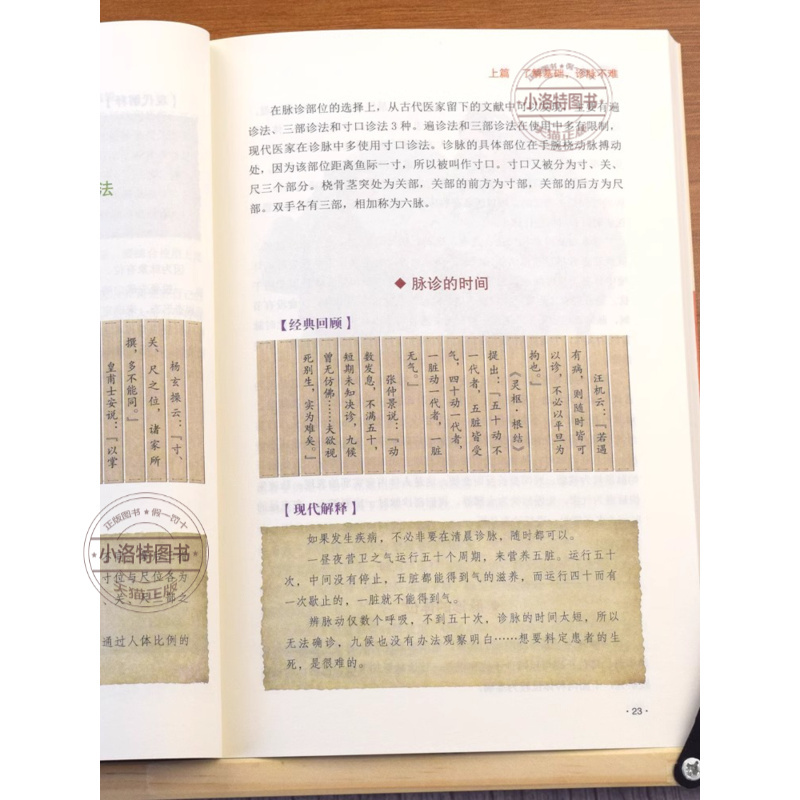 法
杨玄操云：『寸、
关、尺之位，诸家所
撰，多不能同。』
皇甫士安说：『以掌
寸位与尺位各为
通过人体比例的
上篇 了解基础，诊脉不难
在脉诊部位的选择上，从古代医家留下的文献中
有遍
诊法、三部诊法和寸口诊法 3 种。遍诊法和三部诊法在使用中多有限制，
现代医家在诊脉中多使用寸口诊法。诊脉的具体部位在手腕桡动脉搏动
处，因为该部位距离鱼际一寸，所以被叫作寸口。寸口又被分为寸、关、
尺三个部分。桡骨茎突处为关部，关部的前方为寸部，关部的后方为尺
部。双手各有三部，相加称为六脉。
◆ 脉诊的时间
【经典回顾】
汪机云：『若遇
有病，则随时皆可
以诊，不必以平旦为
拘也。』
《灵枢·根结》
提出：『五十动不
一代者，五脏皆受
气，四十动一代者，
一脏动一代者，一脏
无气。』
张仲景说：『动
数发息，不满五十，
短期未知决诊，九候
曾无仿佛……夫欲视
死别生，实为难矣。』
【现代解释】
如果发生疾病，不必非要在清晨诊脉，随时都可以。
一昼夜营卫之气运行五十个周期，来营养五脏。运行五十
次，中间没有停止，五脏都能得到气的滋养，而运行四十而有
一次歇止的，一脏就不能得到气。
辨脉动仅数个呼吸，不到五十次，诊脉的时间太短，所以
无法确诊，九候也没有办法观察明白……想要料定患者的生
死，是很难的。
·23·
小洛特图书
正版图书 假一罚十
小洛特图书
天猫正版